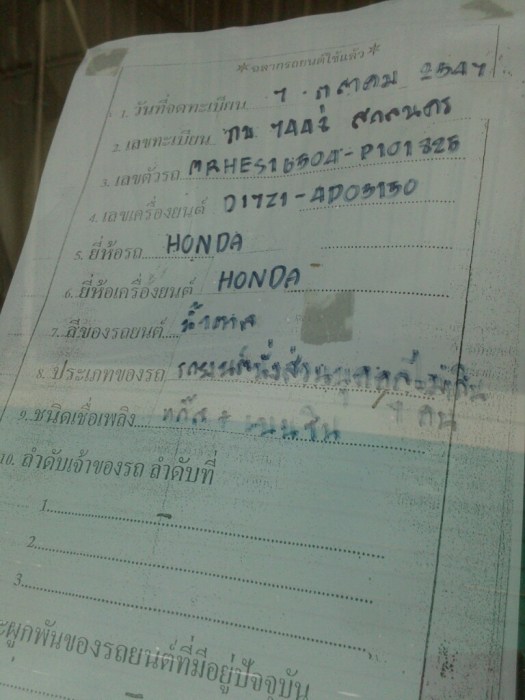 *ฉลากรถยนต์ใช้แล้ว*
1. วันที่จดทะเบียน 7 ตุลาคม 2547
2. เลขทะเบียน กข 7442 สกลนคร
3. เลขตัวรถ MRHES16504-P101825
4. เลขเครื่องยนต์ D17Z1-4D05130
5. ยี่ห้อรถ HONDA
6. ยี่ห้อเครื่องยนต์ HONDA
7. สีของรถยนต์ น้ำตาล
8. ประเภทของรถ รถยนต์นั่งส่วนบุคคลไม่เกิน
7 คน
9. ชนิดเชื่อเพลิง แก๊ส + เบนซิน
10. ลำดับเจ้าของรถ ลำดับที่
1. -
2.
3.
ผูกพันของรถยนต์ที่มีอยู่ปัจจุบัน